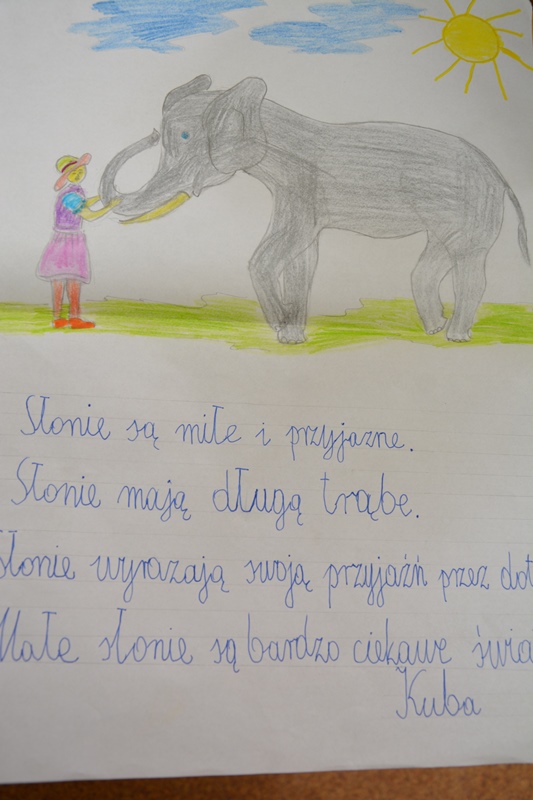 Słonie są miłe i przyjazne.
Słonie mają długą trąbe.
Słonie wyrazają swoją przyjaźń przez dot
Małe słonie są bardzo ciekawe świa
Kuba